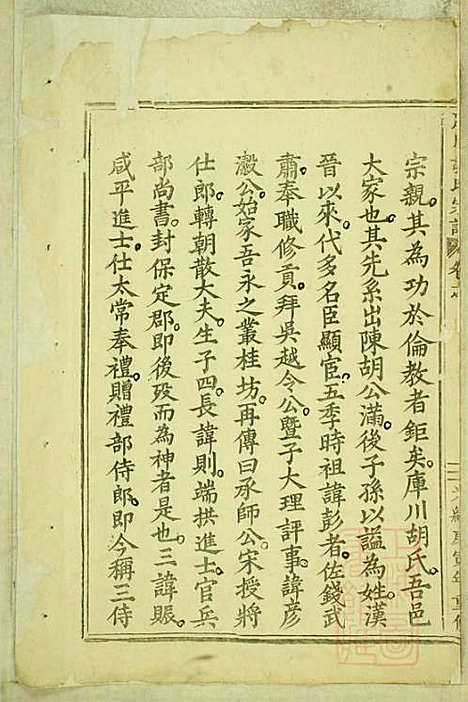 宗親。其為功於倫教者鉅矣。庫川胡氏。吾邑
大家也。其先系出陳胡公滿。後子孫以謚為姓。漢
晉以來。代多名臣顯宦。五季時祖諱彭者。佐錢武
肅。奉職修貢。拜吳越令公。暨子大理評事。諱彦
瀫公。始家吾永之叢桂坊。再傳曰承師公。宋授將
仕郎。轉朝散大夫。生子四。長諱則。端拱進士。官兵
部尚書。封保定郡。即後歿而為神者是也。三諱賑。
咸平進士。仕太常奉禮。贈禮部侍郎。即今稱三侍
胡氏宗譜 卷之
光緒庚寅年重修